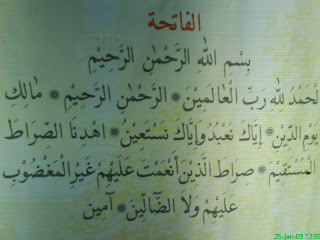 الفاتحة
بِسْمِ اللهِ الرَّحْمٰنِ الرَّحِيْمِ
لْحَمْدُ لِلّٰهِ رَبِّ الْعَالَمِيْنَ * الرَّحْمٰنِ الرَّحِيْمِ * مَالِكِ
يَوْمِ الدِّيْنِ * إِيَّاكَ نَعْبُدُ وَإِيَّاكَ نَسْتَعِيْنُ * اهْدِنَا الصِّرَاطَ
الْمُسْتَقِيْمَ * صِرَاطَ الَّذِيْنَ أَنْعَمْتَ عَلَيْهِمْ غَيْرِ الْمَغْضُوْبِ
عَلَيْهِمْ وَلَا الضَّالِّيْنَ * آمِيْن
25-Jan-09 12:55